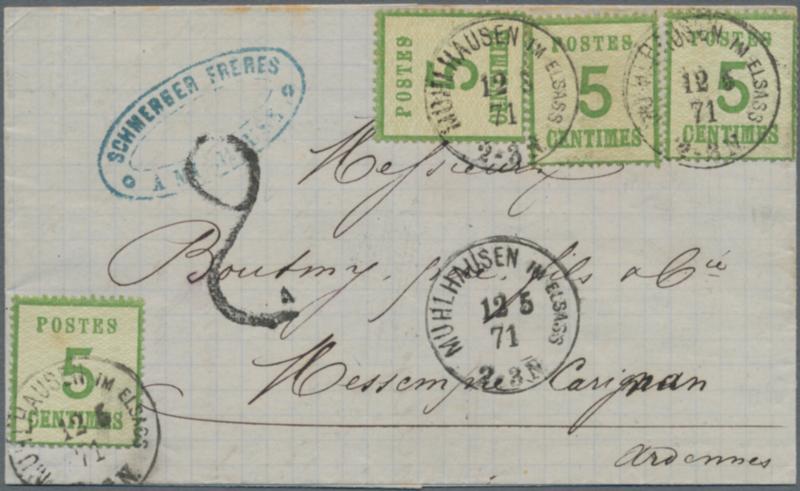 SCHMERBER FRERES
POSTES
5
CENTIMES
POSTES
5
CENTIMES
POSTES
5
CENTIMES
MÜHLHAUSEN IM ELSASS
12 5
71
2-3 N
MÜHLHAUSEN IM ELSASS
12 5
71
2-3 N
2
Messieurs
Boutmy, père, fils & Cie
MÜHLHAUSEN IM ELSASS
12 5
71
2-3 N
Messempré Carignan
Ardennes
POSTES
5
CENTIMES
MÜHLHAUSEN IM ELSASS
12 5
71
N